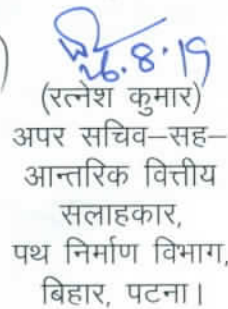 26.8.19
(रत्नेश कुमार)
अपर सचिव–सह–
आन्तरिक वित्तीय
सलाहकार,
पथ निर्माण विभाग,
बिहार, पटना।